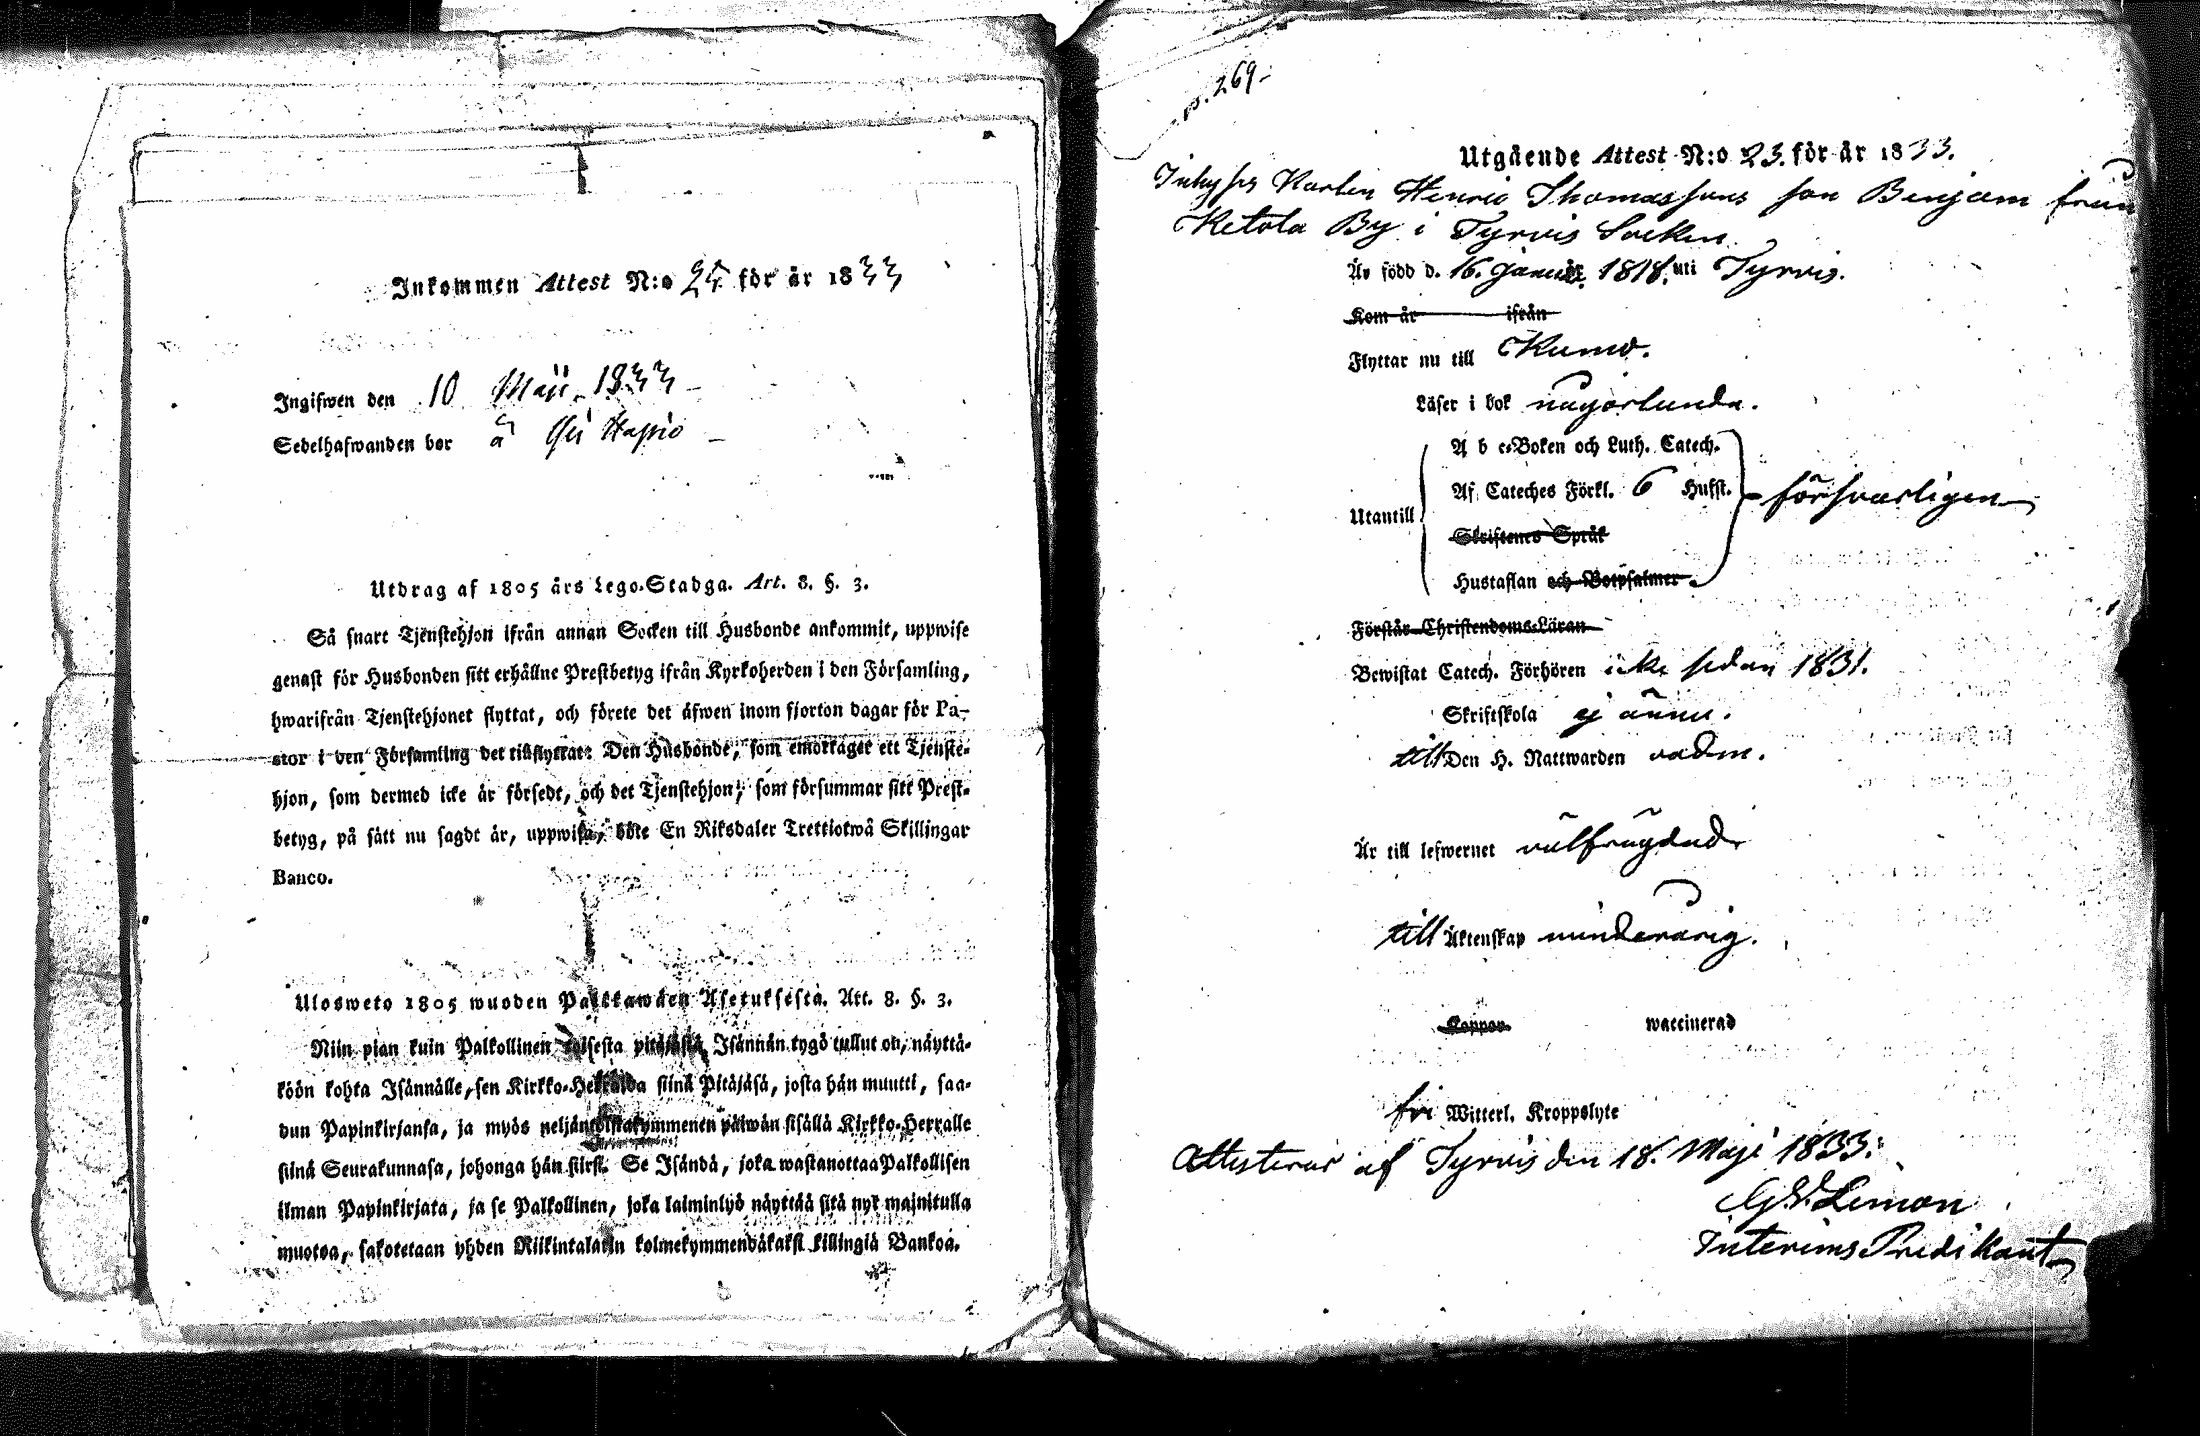 Inkommen Attest N:o 25 för år 1833
Ingifwen den 10 Maji 1833
Sedelhafwanden bor å
Utdrag af 1805 års Lego-Stadga. Art. 8. §. 3.
Så snart Tjenstehjon ifrån annan Socken till Husbonde ankommit, uppwise
genast för Husbonden sitt erhållne Prestbetyg ifrån Kyrkoherden i den Församling,
hwarifrån Tjenstehjonet flyttat, och förete det äfwen inom fjorton dagar för Pa-
stor i den Församling det tillflyttat: Den Husbonde, som emottager ett Tjenste-
hjon, som dermed icke är försedt, och det Tjenstehjon, som försummar sitt Prest-
betyg, på sätt nu sagdt är, uppwisa, böte En Riksdaler Trettiotwå Skillingar
Banco.
Ulosweto 1805 wuoden Palkkawäen Asetuksesta. Art. 8. §. 3.
Niin pian kuin Palkollinen toisesta pitäjästä Isännän tygö tullut on, näyttä-
köön kohta Isännälle, sen Kirkko-Herralda siinä Pitäjäsä, josta hän muutti, saa-
dun Papinkirjansa, ja myös neljäntoistakymmenen päiwän sisällä Kirkko-Herralle
siinä Seurakunnasa, johonga hän siirsi. Se Isändä, joka wastanottaa Palkollisen
ilman Papinkirjata, ja se Palkollinen, joka laiminlyö näyttää sitä nyt mainitulla
muotoa, sakotetaan yhden Riikintalarin kolmekymmendäkaksi killingiä Bankoa.
p. 269-
Utgående Attest N:o 23. för år 1833.
Inhyses Karlen Henric Thomassons son Benjam från
Ketola By i Tyrvis Socken
Är född d. 16. Januar. 1818. uti Tyrvis.
Kom år ifrån
Flyttar nu till Kumo.
Läser i bok någorlunda.
A b c-Boken och Luth. Catech.
Af Cateches Förkl. 6 Hufst. försvarligen
Utantill
Skriftenes Språk
Hustaflan och Botpsalmer
Förstår Christendoms-Läran
Bewistat Catech. Förhören icke sedan 1831.
Skriftskola ej ännu.
till Den H. Nattwarden
Är till lefwernet välfrägdad
till Äktenskap minderårig.
Koppor waccinerad
fri Witterl. Kroppslyte
Attesterar af Tyrvis den 18. Maji 1833:
Limon
Interims Predikant